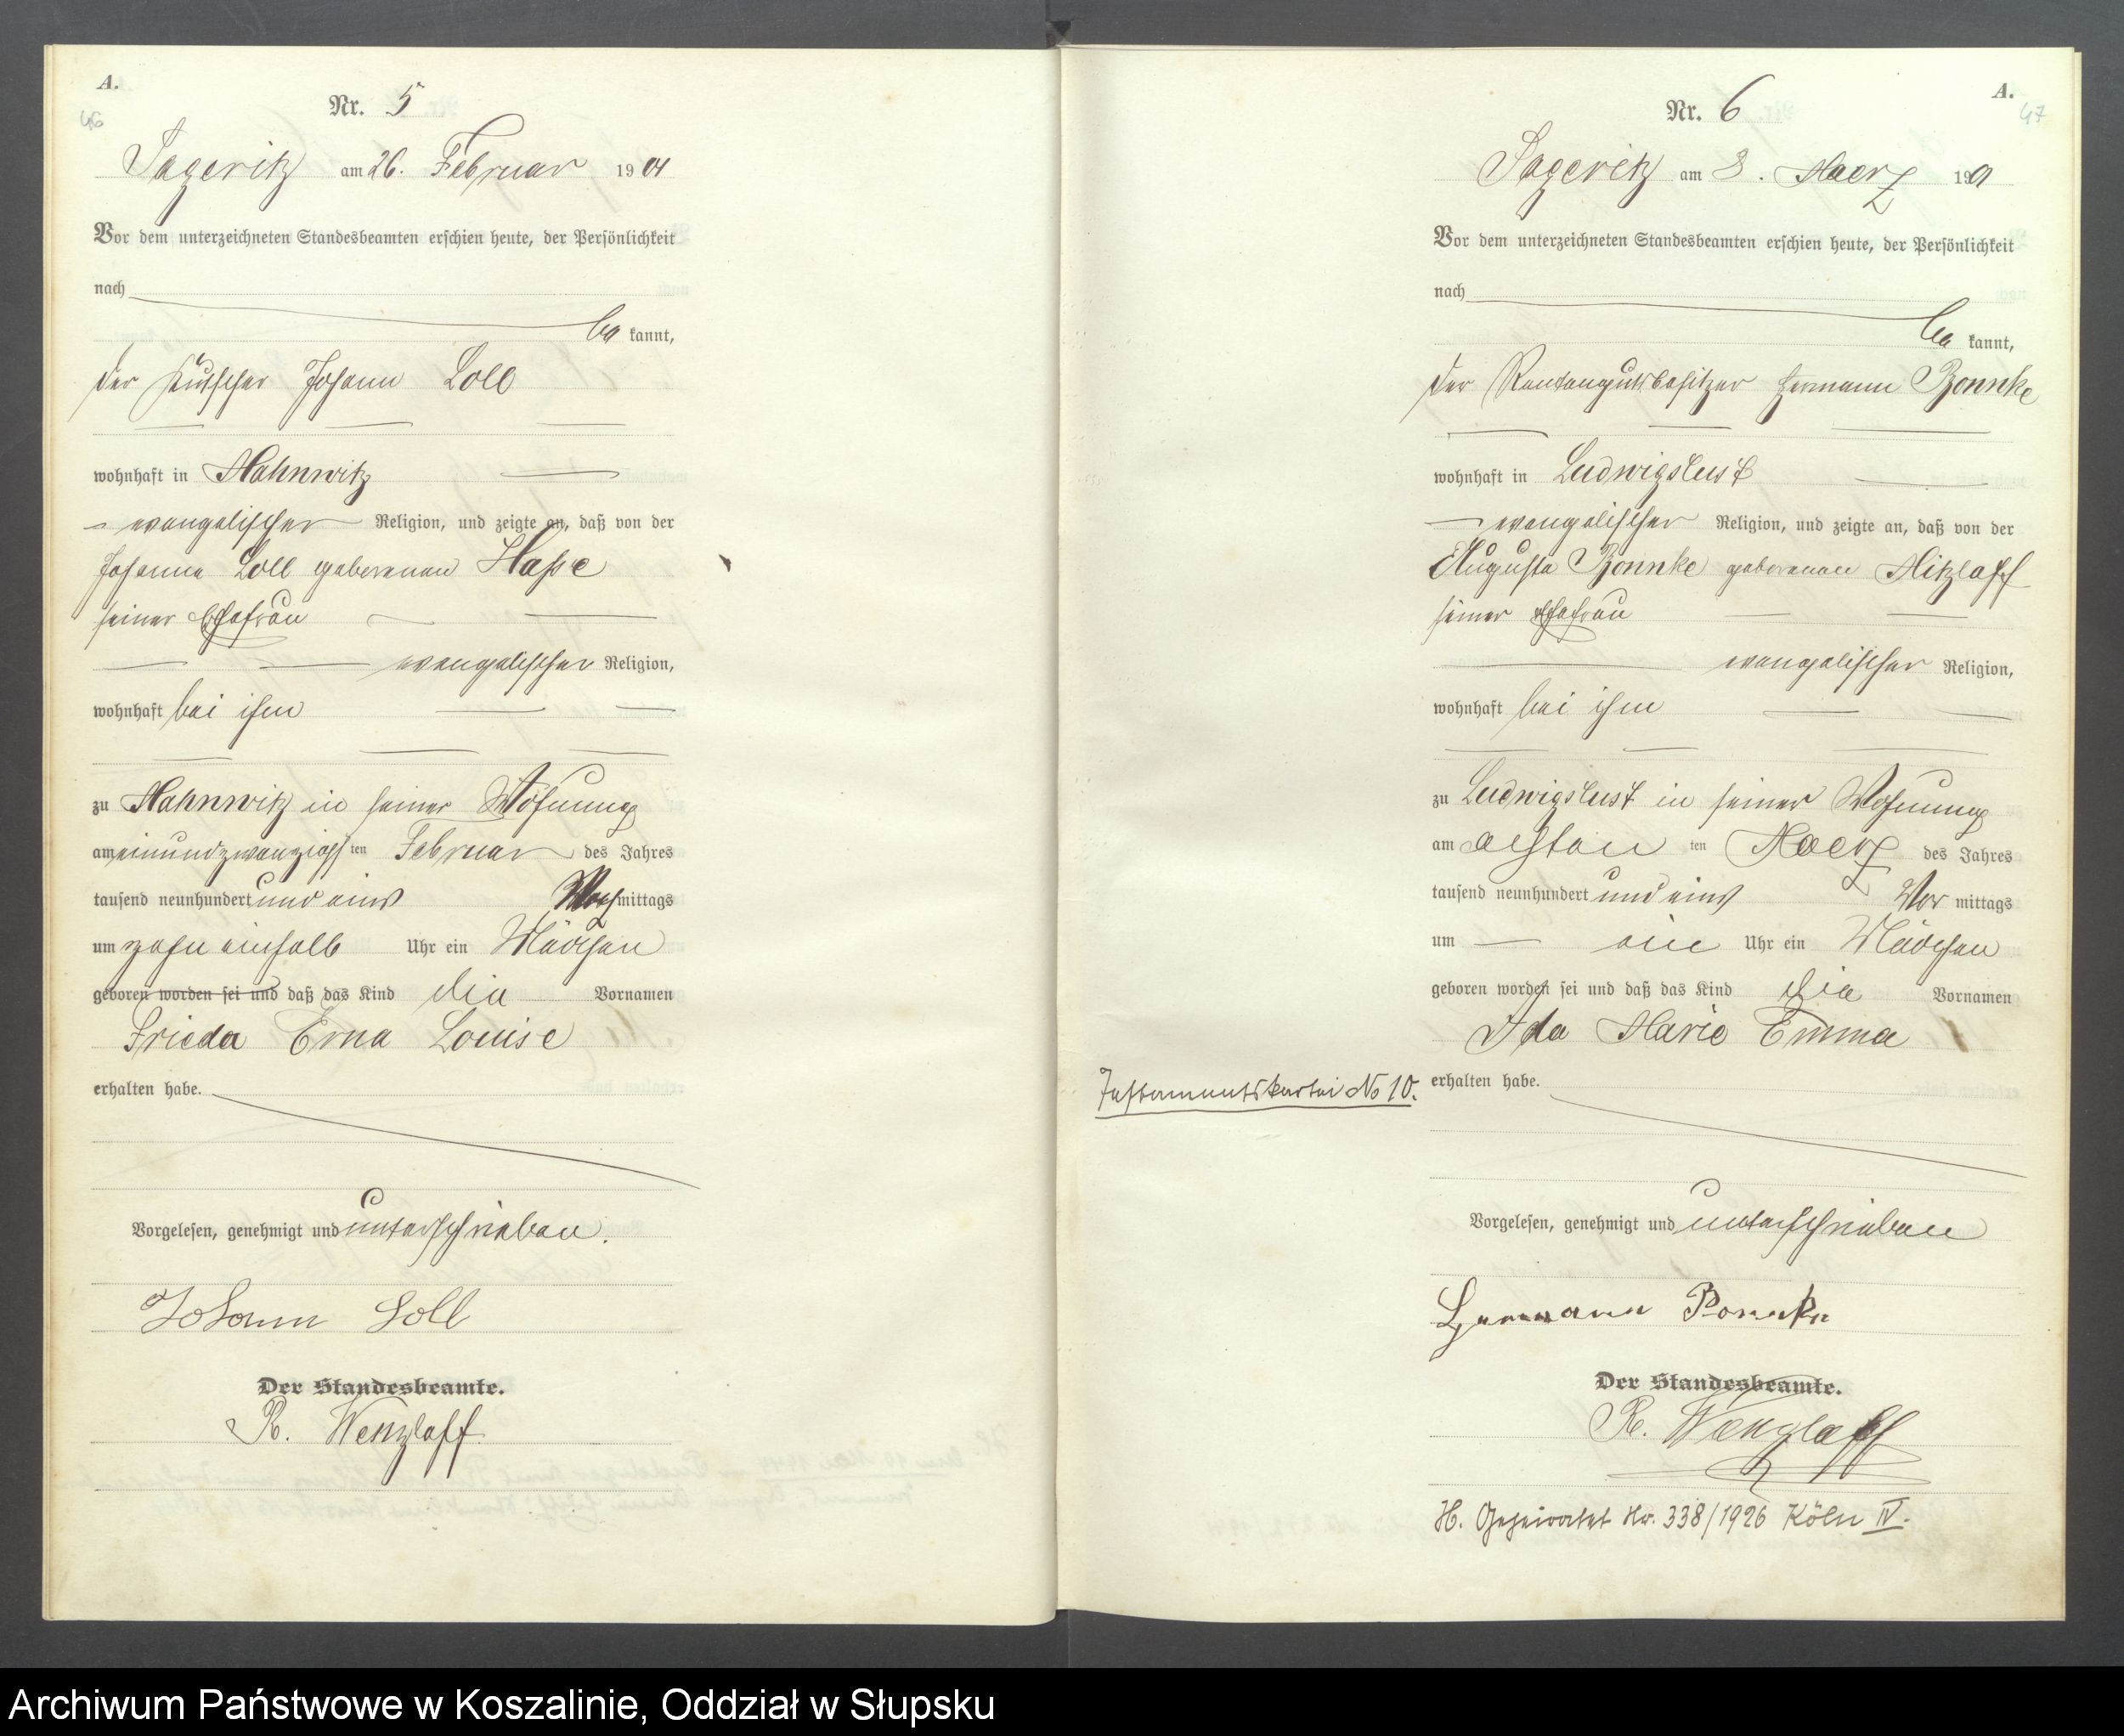 A.
46
Nr. 5
Sageritz am 26. Februar 1901
Vor dem unterzeichneten Standesbeamten erschien heute, der Persönlichkeit
nach
be kannt,
der Kutscher Johann Loll
wohnhaft in Mahnwitz
evangelischer Religion, und zeigte an, daß von der
Johanna Loll geborenen Hasse
seiner Ehefrau
evangelischer Religion,
wohnhaft bei ihm
zu Mahnwitz in seiner Wohnung
am einundzwanzigsten Februar des Jahres
tausend neunhundert und eins mittags
um zehn einhalb Uhr ein Mädchen
geboren worden sei und daß das Kind die Vornamen
Frieda Erna Louise
erhalten habe.
Vorgelesen, genehmigt und unterschrieben.
Johann Loll
Der Standesbeamte.
R. Wenzlaff
A.
47
Nr. 6
Sageritz am 8. Maerz 1901
Vor dem unterzeichneten Standesbeamten erschien heute, der Persönlichkeit
nach
be kannt,
der Rentengutsbesitzer Hermann Ponnke
wohnhaft in Ludwigslust
evangelischer Religion, und zeigte an, daß von der
Auguste Ponnke geborenen Mitzlaff
seiner Ehefrau
evangelischer Religion,
wohnhaft bei ihm
zu Ludwigslust in seiner Wohnung
am ten Maerz des Jahres
tausend neunhundert und eins Vor mittags
um ein Uhr ein Mädchen
geboren worden sei und daß das Kind die Vornamen
Ida Marie Emma
Testamentskartei No 10.
erhalten habe.
Vorgelesen, genehmigt und unterschrieben
Hermann Ponnke
Der Standesbeamte.
R. Wenzlaff
H. Geheiratet Nr. 338/1926 Köln IV.
Archiwum Państwowe w Koszalinie, Oddział w Słupsku